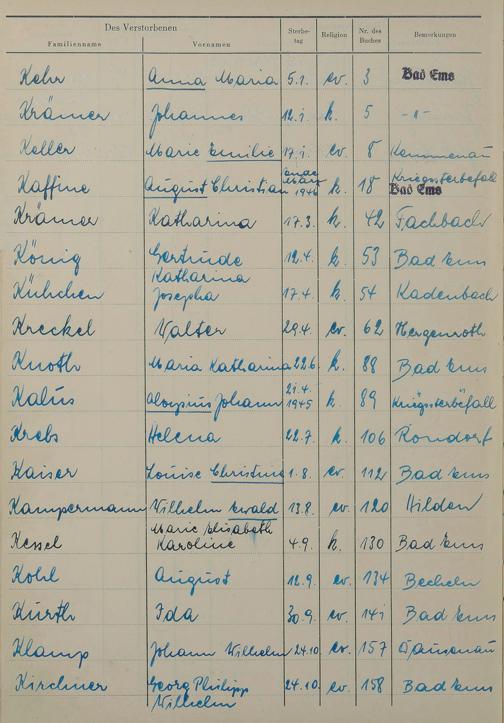 Des Verstorbenen
Familienname Vornamen Sterbe-tag Religion Nr. des Buches Bemerkungen
Kehr Anna Maria 5.1. ev. 3 Bad Ems
Krämer Johannes 12.1. k. 5 -"-
Keller Marie Emilie 17.1. ev. 8 Kemmenau
Kaffine August Christian Ende März 1946 k. 18 Kriegssterbefall Bad Ems
Krämer Katharina 17.3. k. 42 Fachbach
König Gertrude 12.4. k. 53 Bad Ems
Kühchen Katharina Josepha 17.4. k. 54 Kadenbach
Kreckel Walter 29.4. ev. 62 Hergenroth
Knoth Maria Katharina 22.6. k. 88 Bad Ems
Kalus Aloysius Johann 21.4. 1945 k. 89 Kriegssterbefall
Krebs Helena 22.7. k. 106 Rondorf
Kaiser Louise Christine 1.8. ev. 112 Bad Ems
Kampermann Wilhelm Ewald 13.8. ev. 120 Hilden
Kessel Marie Elisabeth Karoline 4.9. k. 130 Bad Ems
Kohl August 12.9. ev. 134 Becheln
Kurth Ida 30.9. ev. 141 Bad Ems
Klamp Johann Wilhelm 24.10. ev. 157 Dausenau
Kirchner Georg Philipp Wilhelm 24.10. ev. 158 Bad Ems